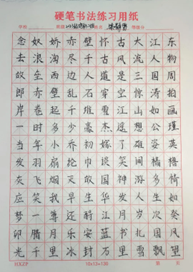 硬笔书法练习用纸
念奴娇赤壁怀古大江东
去浪淘尽千古风流人物
故垒西边人道是三国周
郎赤壁乱石穿空惊涛拍
岸卷起千堆雪江山如画
一时多少豪杰遥想公瑾
当年小乔初嫁了雄姿英
发羽扇纶巾谈笑间樯橹
灰飞烟灭故国神游多情
应笑我早生华发人生如
梦一尊还酹江月岁次癸
卯腊月乐安书北国风
光千里冰封万里雪飘望